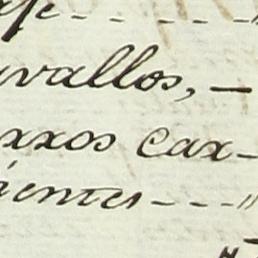 avallos, -
rxxos cax-
ientes - - - "